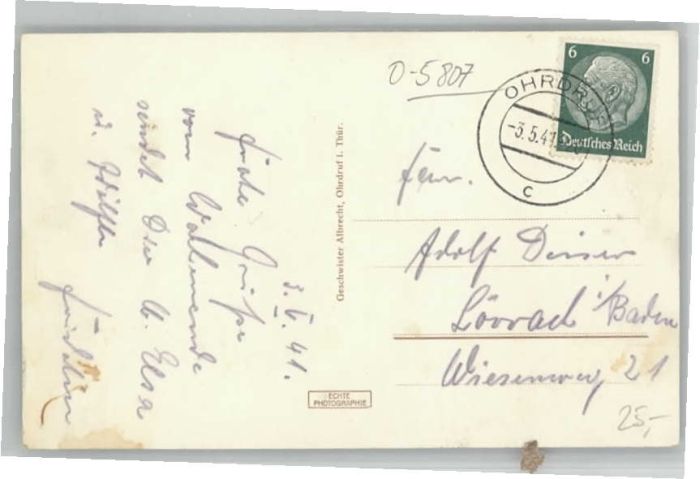 3.5.41.
frohe Grüße
vom Wochenende
sendet Dir u. Elsa
u.
Geschwister Albrecht, Ohrdruf i. Thür.
ECHTE
PHOTOGRAPHIE
O-5807
6 6
Deutsches Reich
OHRDRUF
-3.5.41
c
Adolf
Lörrach i/Baden
Wiesenweg 21
25,-